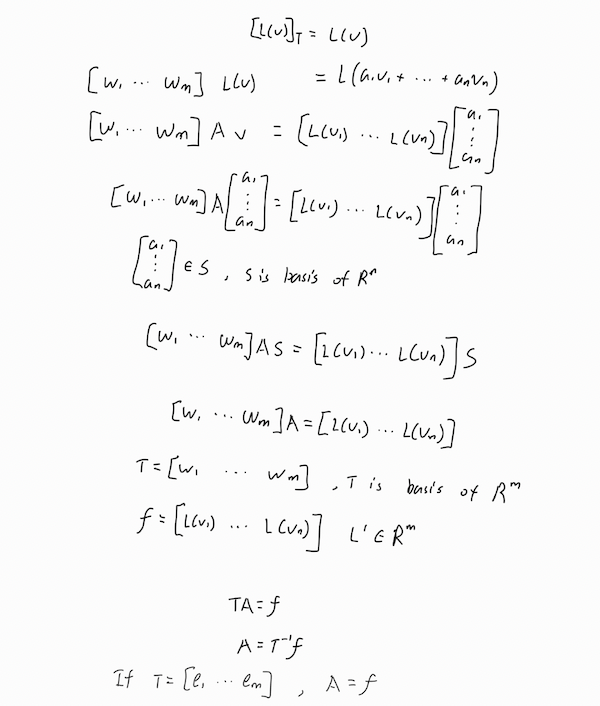 [L(v)]_T = L(v)
[w₁ ⋯ wₘ] L(v) = L(a₁v₁ + ⋯ + aₙvₙ)
[w₁ ⋯ wₘ] A v = [L(v₁) ⋯ L(vₙ)] [a₁ ⋮ aₙ]
[w₁ ⋯ wₘ] A [a₁ ⋮ aₙ] = [L(v₁) ⋯ L(vₙ)] [a₁ ⋮ aₙ]
[a₁ ⋮ aₙ] ∈ S , S is basis of Rⁿ
[w₁ ⋯ wₘ] A S = [L(v₁) ⋯ L(vₙ)] S
[w₁ ⋯ wₘ] A = [L(v₁) ⋯ L(vₙ)]
T = [w₁ ⋯ wₘ] , T is basis of Rᵐ
f = [L(v₁) ⋯ L(vₙ)] L' ∈ Rᵐ
TA = f
A = T⁻¹f
If T = [e₁ ⋯ eₘ] , A = f